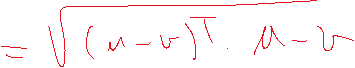 = √(u-v)ᵀ. u-v